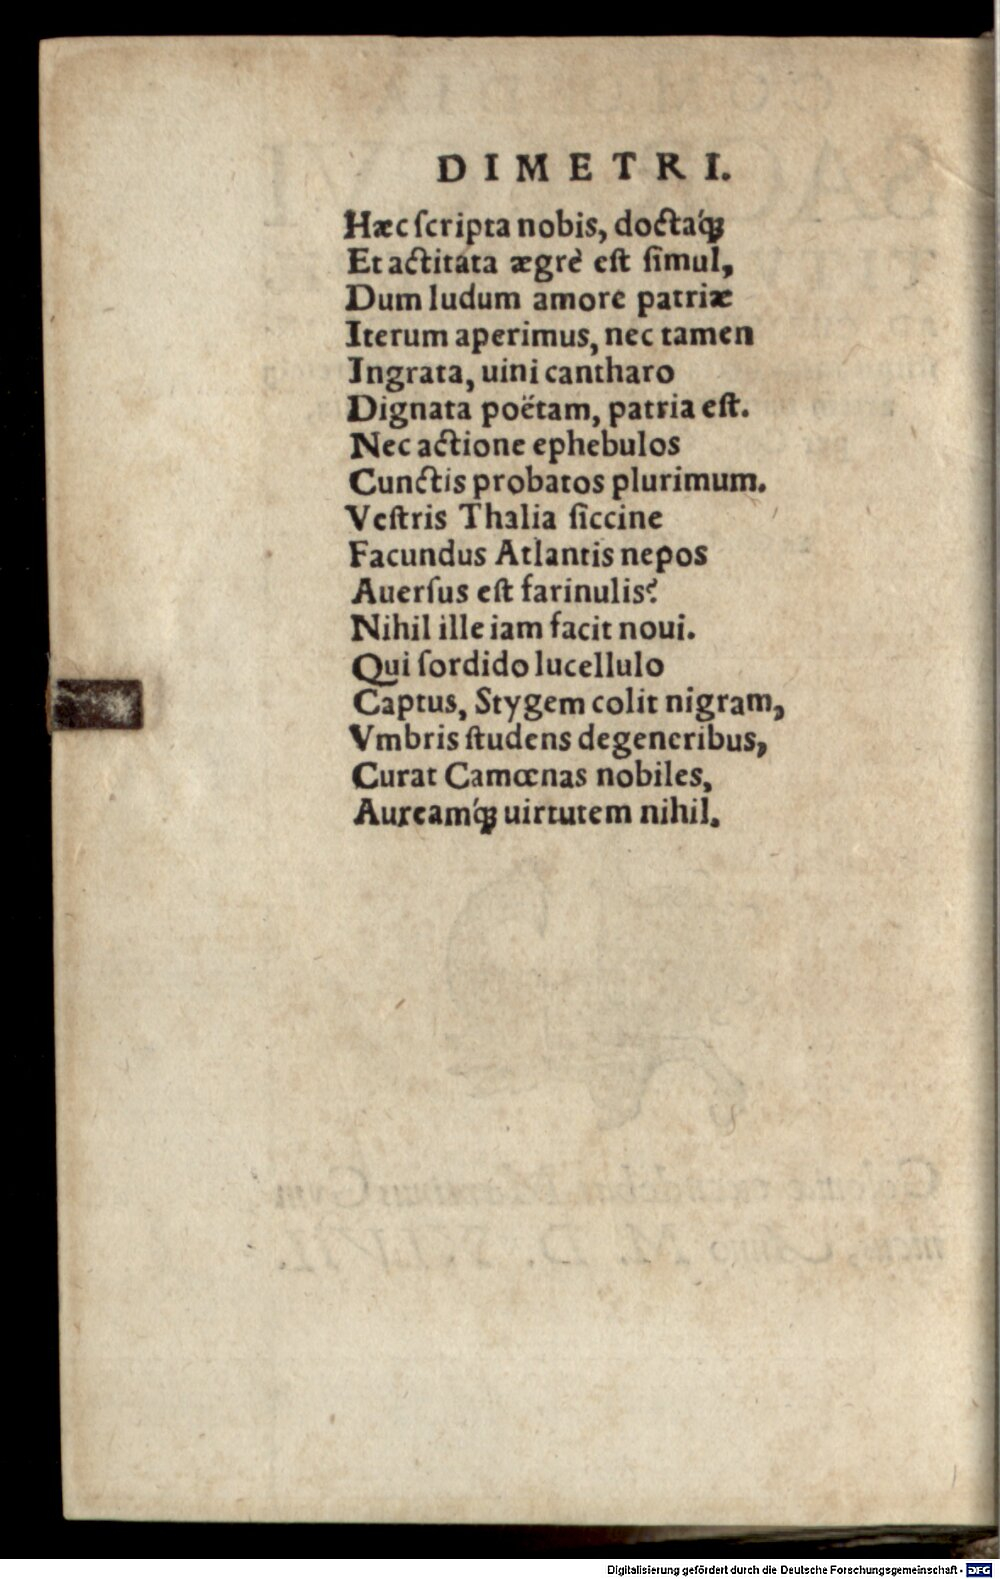 DIMETRI.
Hæc ſcripta nobis, doctaq́ꝫ
Et actitata ægrè eſt ſimul,
Dum ludum amore patriæ
Iterum aperimus, nec tamen
Ingrata, uini cantharo
Dignata poëtam, patria eſt.
Nec actione ephebulos
Cunctis probatos plurimum.
Veſtris Thalia ſiccine
Facundus Atlantis nepos
Auerſus eſt farinulis?
Nihil ille iam facit noui.
Qui ſordido lucellulo
Captus, Stygem colit nigram,
Vmbris ſtudens degeneribus,
Curat Camœnas nobiles,
Aureamq́ꝫ uirtutem nihil.
Digitalisierung gefördert durch die Deutsche Forschungsgemeinschaft - DFG